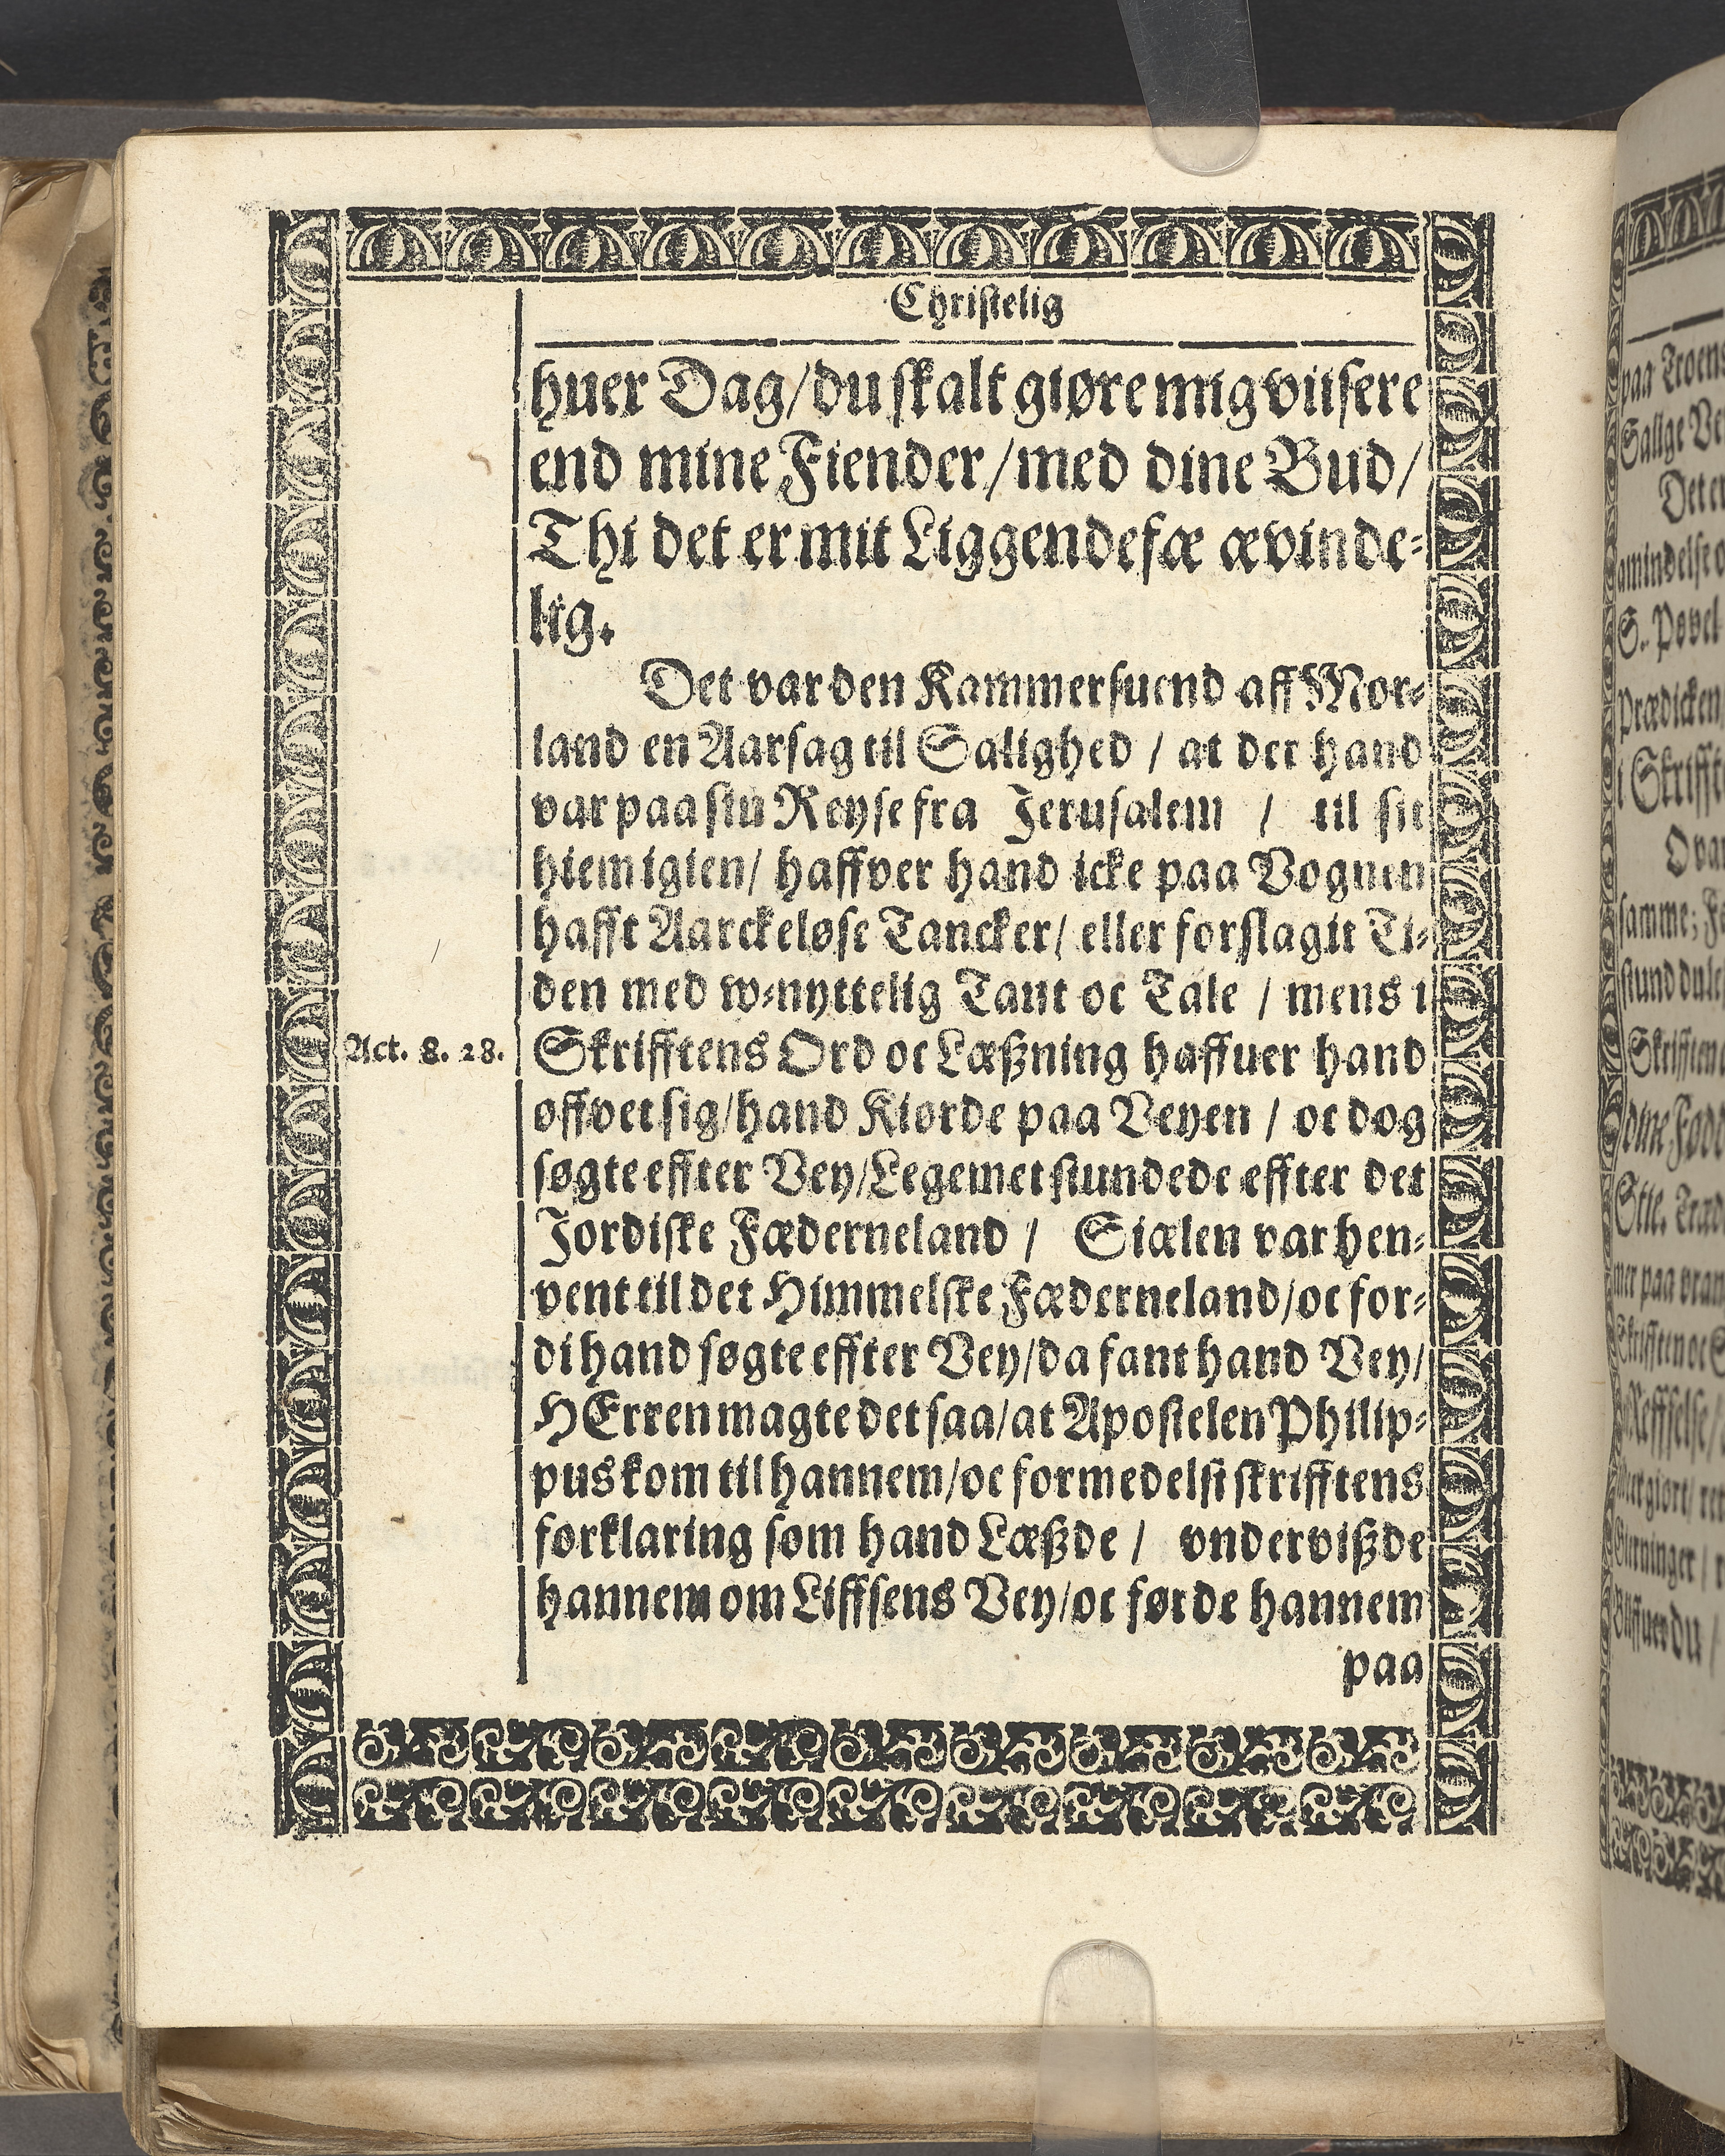 Christelig
huer Dag/du skalt giøre mig viisere
end mine Fiender/med dine Bud/
Thi det er mit Liggendefæ ævinde-
lig.
Det var den Kammersuend aff Mor-
land en Aarsag til Salighed / at der hand
var paa sin Reyse fra Jerusalem / til sit
hiem igien/ haffver hand icke paa Vognen
hafft Aarckeløse Tancker/ eller forslagit Ti-
den med w-nyttelig Tant oc Tale / mens i
Act. 8. 28.
Skrifftens Ord oc Læßning haffuer hand
øffvet sig/hand Kiørde paa Veyen / oc dog
søgte effter Vey/Legemet stundede effter det
Jordiske Fæderneland / Siælen var hen-
vent til det Himmelske Fæderneland/oc for-
di hand søgte effter Vey/da fant hand Vey/
HErren magte det saa/at Apostelen Philip-
pus kom til hannem/oc formedelst skrifftens
forklaring som hand Læßde / vndervißde
hannem om Liffsens Vey/oc førde hannem
paa